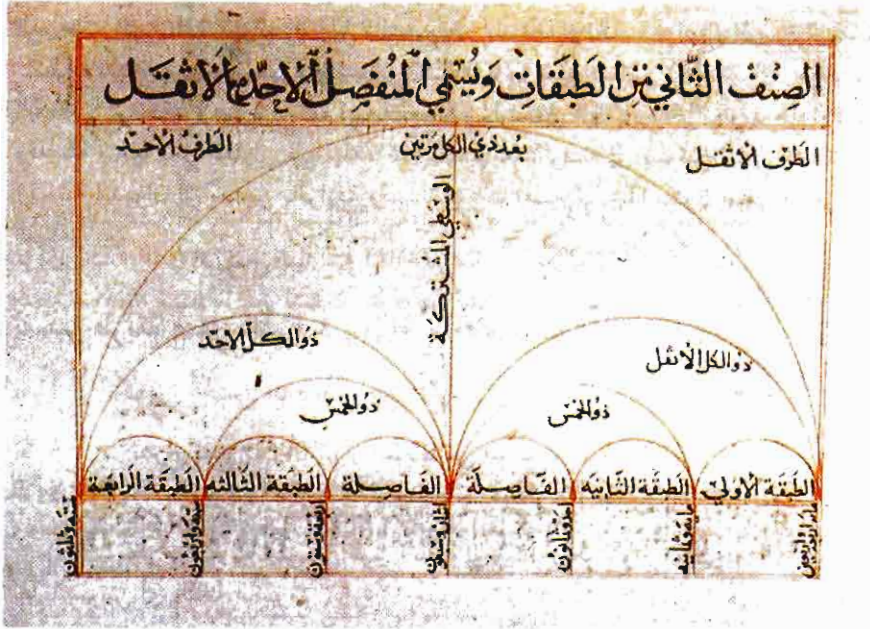 الصنف الثاني من الطبقات ويسمي المنفصل الاحد والاثقل
الطرف الاثقل
بعد ذي الكل مرتين
الطرف الاحد
الوسطي المشتركة
ذو الكل الاثقل
ذو الكل الاحد
ذو الخمس
ذو الخمس
الطبقة الاولي
الطبقة الثانيه
الفاصلة
الفاصلة
الطبقة الثالثه
الطبقة الرابعة